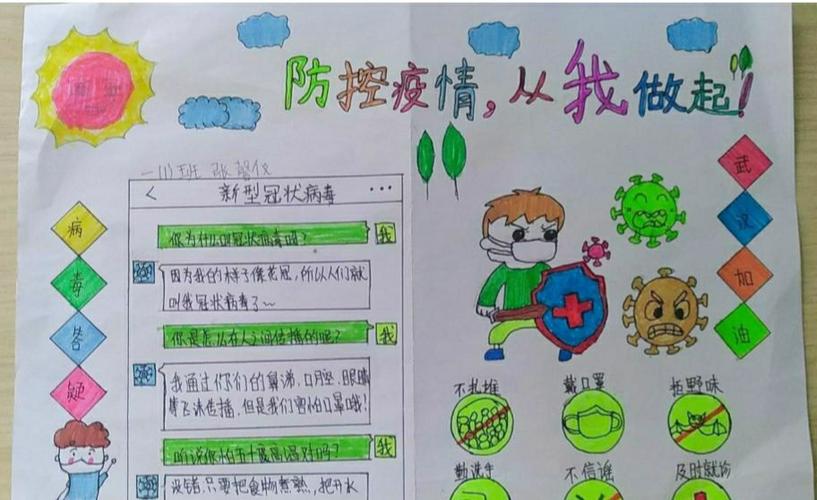 防控疫情，从我做起！
一(1)班 张馨仪
< 新型冠状病毒 ...
你为什么叫冠状病毒呢？ 我
因为我的样子像花冠，所以人们就
叫我冠状病毒了~
你是怎么在人之间传播的呢？ 我
我通过你们的鼻涕、口水、眼睛
等飞沫传播，但是我们害怕口罩哦！
听说你怕五十度高温对吗？ 我
没错，只要把食物煮熟，把开水
病
毒
答
疑
武
汉
加
油
不扎堆
戴口罩
拒野味
勤洗手
不信谣
及时就诊